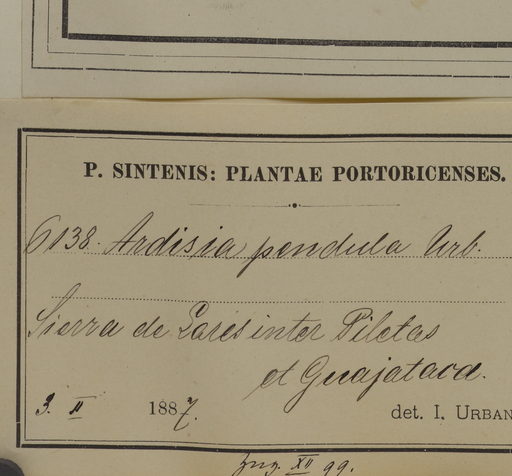 P. SINTENIS: PLANTAE PORTORICENSES.
6138. Ardisia pendula Urb.
Sierra de Lares inter Piletas
et Guajataca.
3. II 1887.
det. I. URBAN
XII 99.